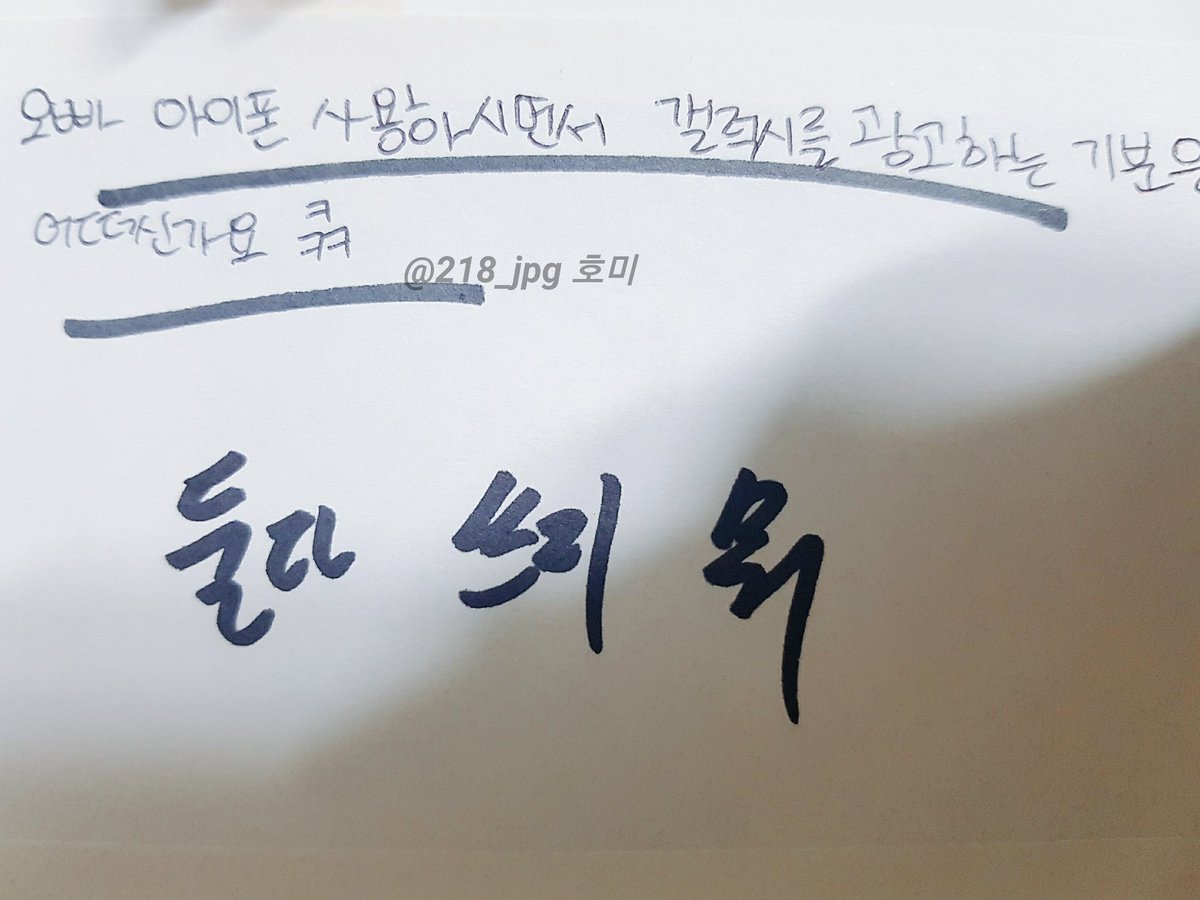 오빠 아이폰 사용하시면서 갤럭시를 광고하는 기분은
어떠신가요 ㅋㅋㅋ
@218_jpg 호미
둘다 쓰리 뭐